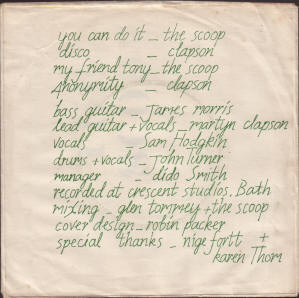 you can do it _ the scoop
disco _ clapson
my friend tony _ the scoop
Anonymity _ clapson
bass guitar _ James morris
lead guitar + vocals _ martyn clapson
vocals _ Sam Hodgkin
drums + vocals _ John Turner
manager _ dido Smith
recorded at crescent studios. Bath
mixing _ glen tommey + the scoop
cover design _ robin packer
special thanks _ nige fortt +
karen Thorn